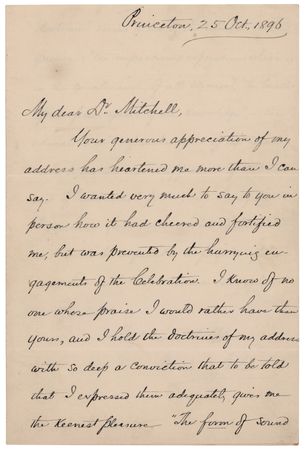 Princeton, 25 Oct. 1896
My dear Dr. Mitchell,
Your generous appreciation of my
address has heartened me more than I can
say. I wanted very much to say to you in
person how it had cheered and fortified
me, but was prevented by the hurrying en-
gagements of the Celebration. I know of no
one whose praise I would rather have than
yours, and I hold the doctrines of my address
with so deep a conviction that to be told
that I expressed them adequately gives me
the keenest pleasure. "The form of sound